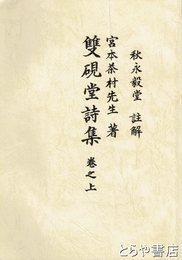 秋永毅堂 註解
宮本茶村先生 著
雙硯堂詩集 巻之上
とらや書店